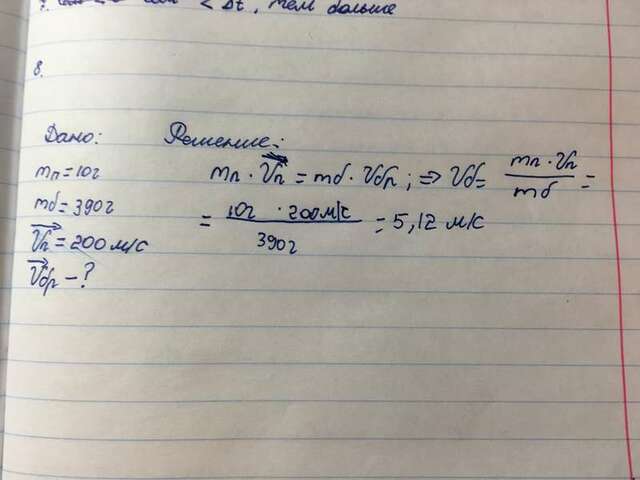 < Δt, тем дальше
8.
Дано:
mп = 10г
mб = 390г
Vп = 200 м/с
Vбр - ?
Решение:
mп · Vп = mб · Vбр; => Vб = mп · Vп / mб =
= 10г · 200 м/с / 390г = 5,12 м/с